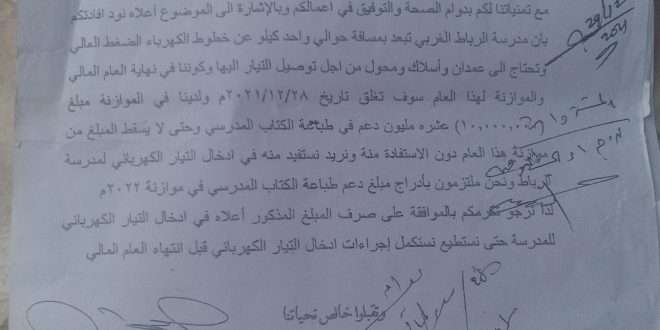 مع تمنياتنا لكم بدوام الصحة والتوفيق في اعمالكم وبالإشارة الى الموضوع أعلاه نود افادتكم
بان مدرسة الرباط الغربي تبعد بمسافة حوالي واحد كيلو عن خطوط الكهرباء الضغط العالي
وتحتاج الى عمدان وأسلاك ومحول من اجل توصيل التيار اليها وكوننا في نهاية العام المالي
والموازنة لهذا العام سوف تغلق تاريخ ٢٠٢١/١٢/٢٨م ولدينا في الموازنة مبلغ
(١٠,٠٠٠,٠٠٠) عشره مليون دعم في طباعة الكتاب المدرسي وحتى لا يسقط المبلغ من
موازنة هذا العام دون الاستفادة منة ونريد نستفيد منه في ادخال التيار الكهربائي لمدرسة
الرباط ونحن ملتزمون بأدراج مبلغ دعم طباعة الكتاب المدرسي في موازنة ٢٠٢٢م
لذا نرجو تكرمكم بالموافقة على صرف المبلغ المذكور أعلاه في ادخال التيار الكهربائي
للمدرسة حتى نستطيع نستكمل إجراءات ادخال التيار الكهربائي قبل انتهاء العام المالي
وتقبلوا خالص تحياتنا